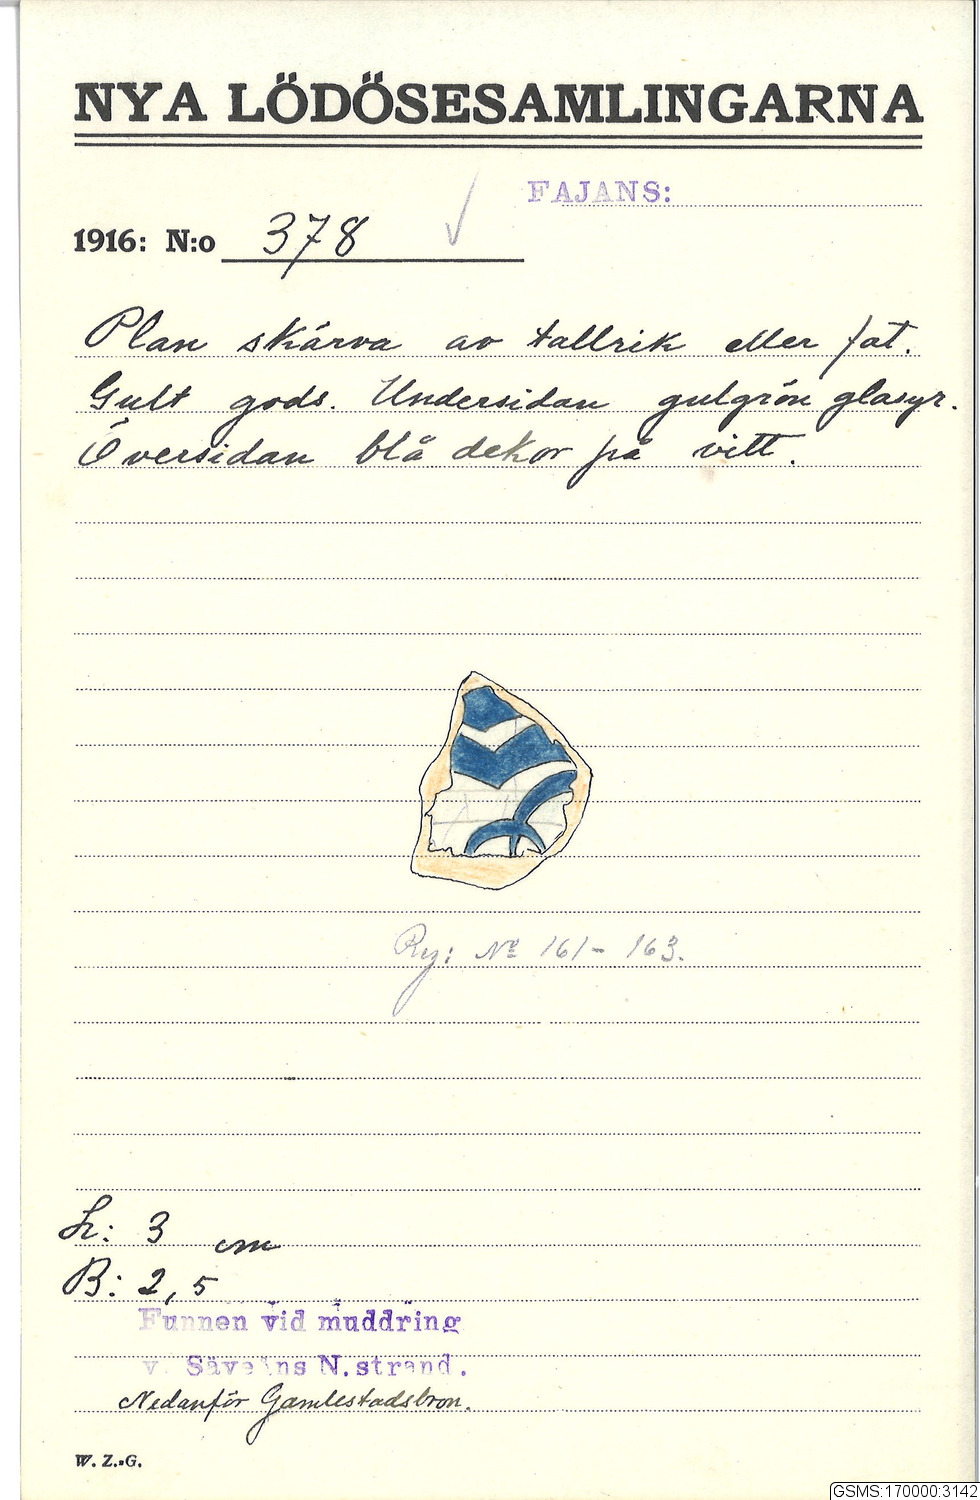 NYA LÖDÖSESAMLINGARNA
FAJANS:
1916: N:o 378
Plan skärva av tallrik eller fat.
Gult gods. Undersidan gulgrön glasyr.
Översidan blå dekor på vitt.
Reg: No 161-163.
L: 3 cm
B: 2,5
Funnen vid muddring
v. Säveåns N. strand.
Nedanför Gamlestadsbron.
W. Z.-G.
GSMS:170000:3142